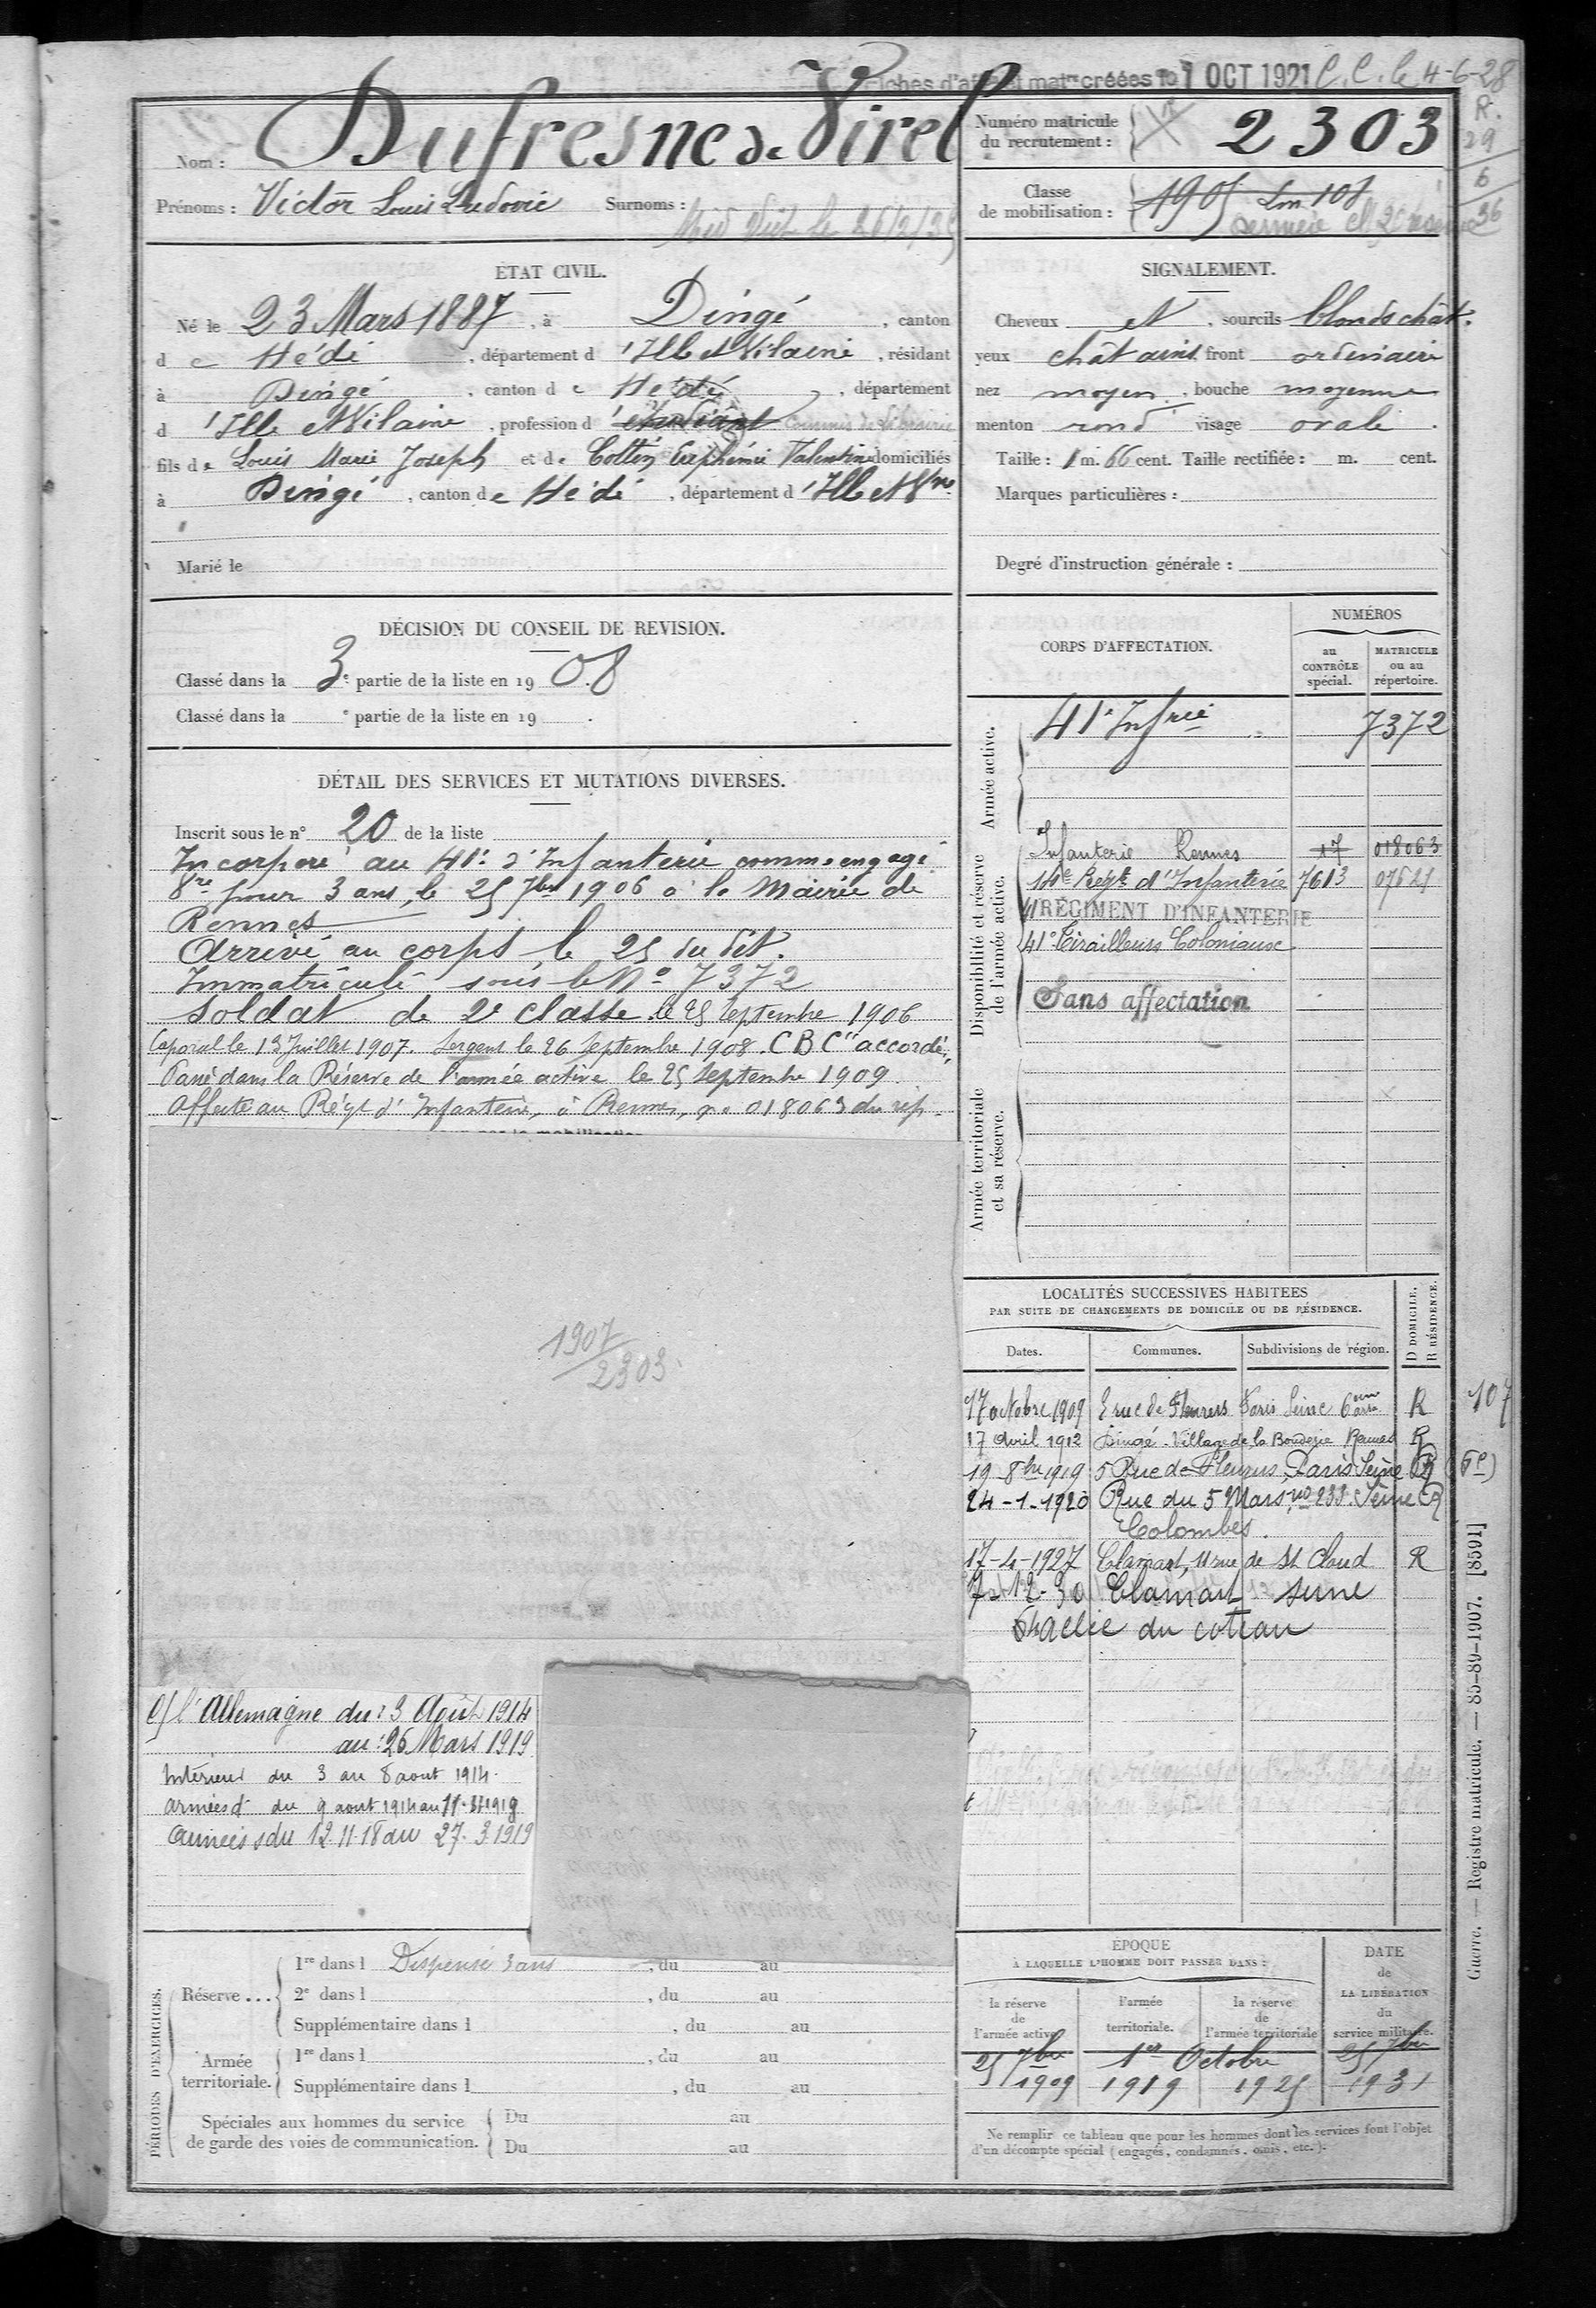 Fiches d'aff on et mat res créées le 1 OCT 1921 C.C. le 4-6-28
R.
29
6
36
Nom : Dufresne de Virel
Prénoms : Victor Louis Ludovic Surnoms :
Numéro matricule
du recrutement : 2303
Classe
de mobilisation : 1905
ÉTAT CIVIL.
Né le 23 Mars 1887, à Dingé, canton
d e Hédé, département d 'Ille et Vilaine, résidant
à Dingé, canton d e Hédé, département
d 'Ille et Vilaine, profession d 'étudiant commis de librairie
fils d e Louis Marie Joseph et d e Cottin Euphémie Valentine domiciliés
à Dingé, canton d e Hédé, département d 'Ille et Vne
Marié le
SIGNALEMENT.
Cheveux et, sourcils blonds chât.
yeux châtains front ordinaire
nez moyen, bouche moyenne
menton rond visage ovale.
Taille : 1 m. 66 cent. Taille rectifiée : m. cent.
Marques particulières :
Degré d'instruction générale :
DÉCISION DU CONSEIL DE REVISION.
Classé dans la 3e partie de la liste en 1908.
Classé dans la e partie de la liste en 19 .
DÉTAIL DES SERVICES ET MUTATIONS DIVERSES.
Inscrit sous le n° 20 de la liste
Incorporé au 41e d'Infanterie comme engagé
pour 3 ans, le 25 7bre 1906 à la Mairie de
Rennes
Arrivé au corps le 25 du dit.
Immatriculé sous le No 7372
Soldat de 2e classe le 25 Septembre 1906
Caporal le 13 Juillet 1907. Sergent le 26 Septembre 1908. C B Cte accordé.
Passé dans la Réserve de l'armée active le 25 Septembre 1909.
Affecté au Régt d'Infanterie, à Rennes, no 018063 du rép.
1907
2303
C/ l'Allemagne du : 3 Août 1914
au : 26 Mars 1919
Intérieur du 3 au 8 aout 1914.
Armées d du 9 aout 1914 au 11-11-1918
Armées du 12.11.18 au 27.3.1919
CORPS D'AFFECTATION.
NUMÉROS
au
CONTRÔLE
spécial.
MATRICULE
ou au
répertoire.
Armée active.
41e Infrie 7372
Disponibilité et réserve
de l'armée active.
Infanterie Rennes 17 018063
Régt d'Infanterie 7613
41 RÉGIMENT D'INFANTERIE
41e Tirailleurs Coloniaux
Sans affectation
Armée territoriale
et sa réserve.
LOCALITÉS SUCCESSIVES HABITÉES
PAR SUITE DE CHANGEMENTS DE DOMICILE OU DE RÉSIDENCE.
Dates. Communes. Subdivisions de région. D DOMICILE. R RÉSIDENCE.
17 octobre 1909 rue de Fleurus Paris Seine 6eme arrt R 107
17 Avril 1912 Dingé Village de la Bouderie Rennes R
19 8bre 1919 5 Rue de Fleurus, Paris Seine R (6e)
24-1-1920 Rue du 5 Mars no 233. Seine R
Colombes.
17-4-1927 Clamart, 11 rue de St Cloud R
7-12-30 Clamart Seine
Allée du coteau
PÉRIODES D'EXERCICES.
Réserve ...
1re dans l Dispensé 3 ans, du au
2e dans l , du au
Supplémentaire dans l , du au
Armée
territoriale.
1re dans l , du au
Supplémentaire dans l , du au
Spéciales aux hommes du service
de garde des voies de communication.
Du au
Du au
ÉPOQUE
À LAQUELLE L'HOMME DOIT PASSER DANS :
la réserve
de
l'armée active
l'armée
territoriale.
la réserve
de
l'armée territoriale
DATE
de
LA LIBÉRATION
du
service militaire.
25 7bre 1er Octobre 25 7bre
1909 1919 1925 1931
Ne remplir ce tableau que pour les hommes dont les services font l'objet
d'un décompte spécial (engagés, condamnés, omis, etc.).
Guerre. — Registre matricule. — 85-89-1907. [8591]